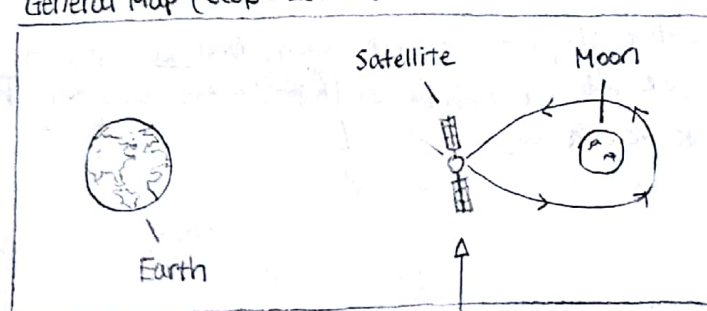 General Map
Satellite
Moon
Earth